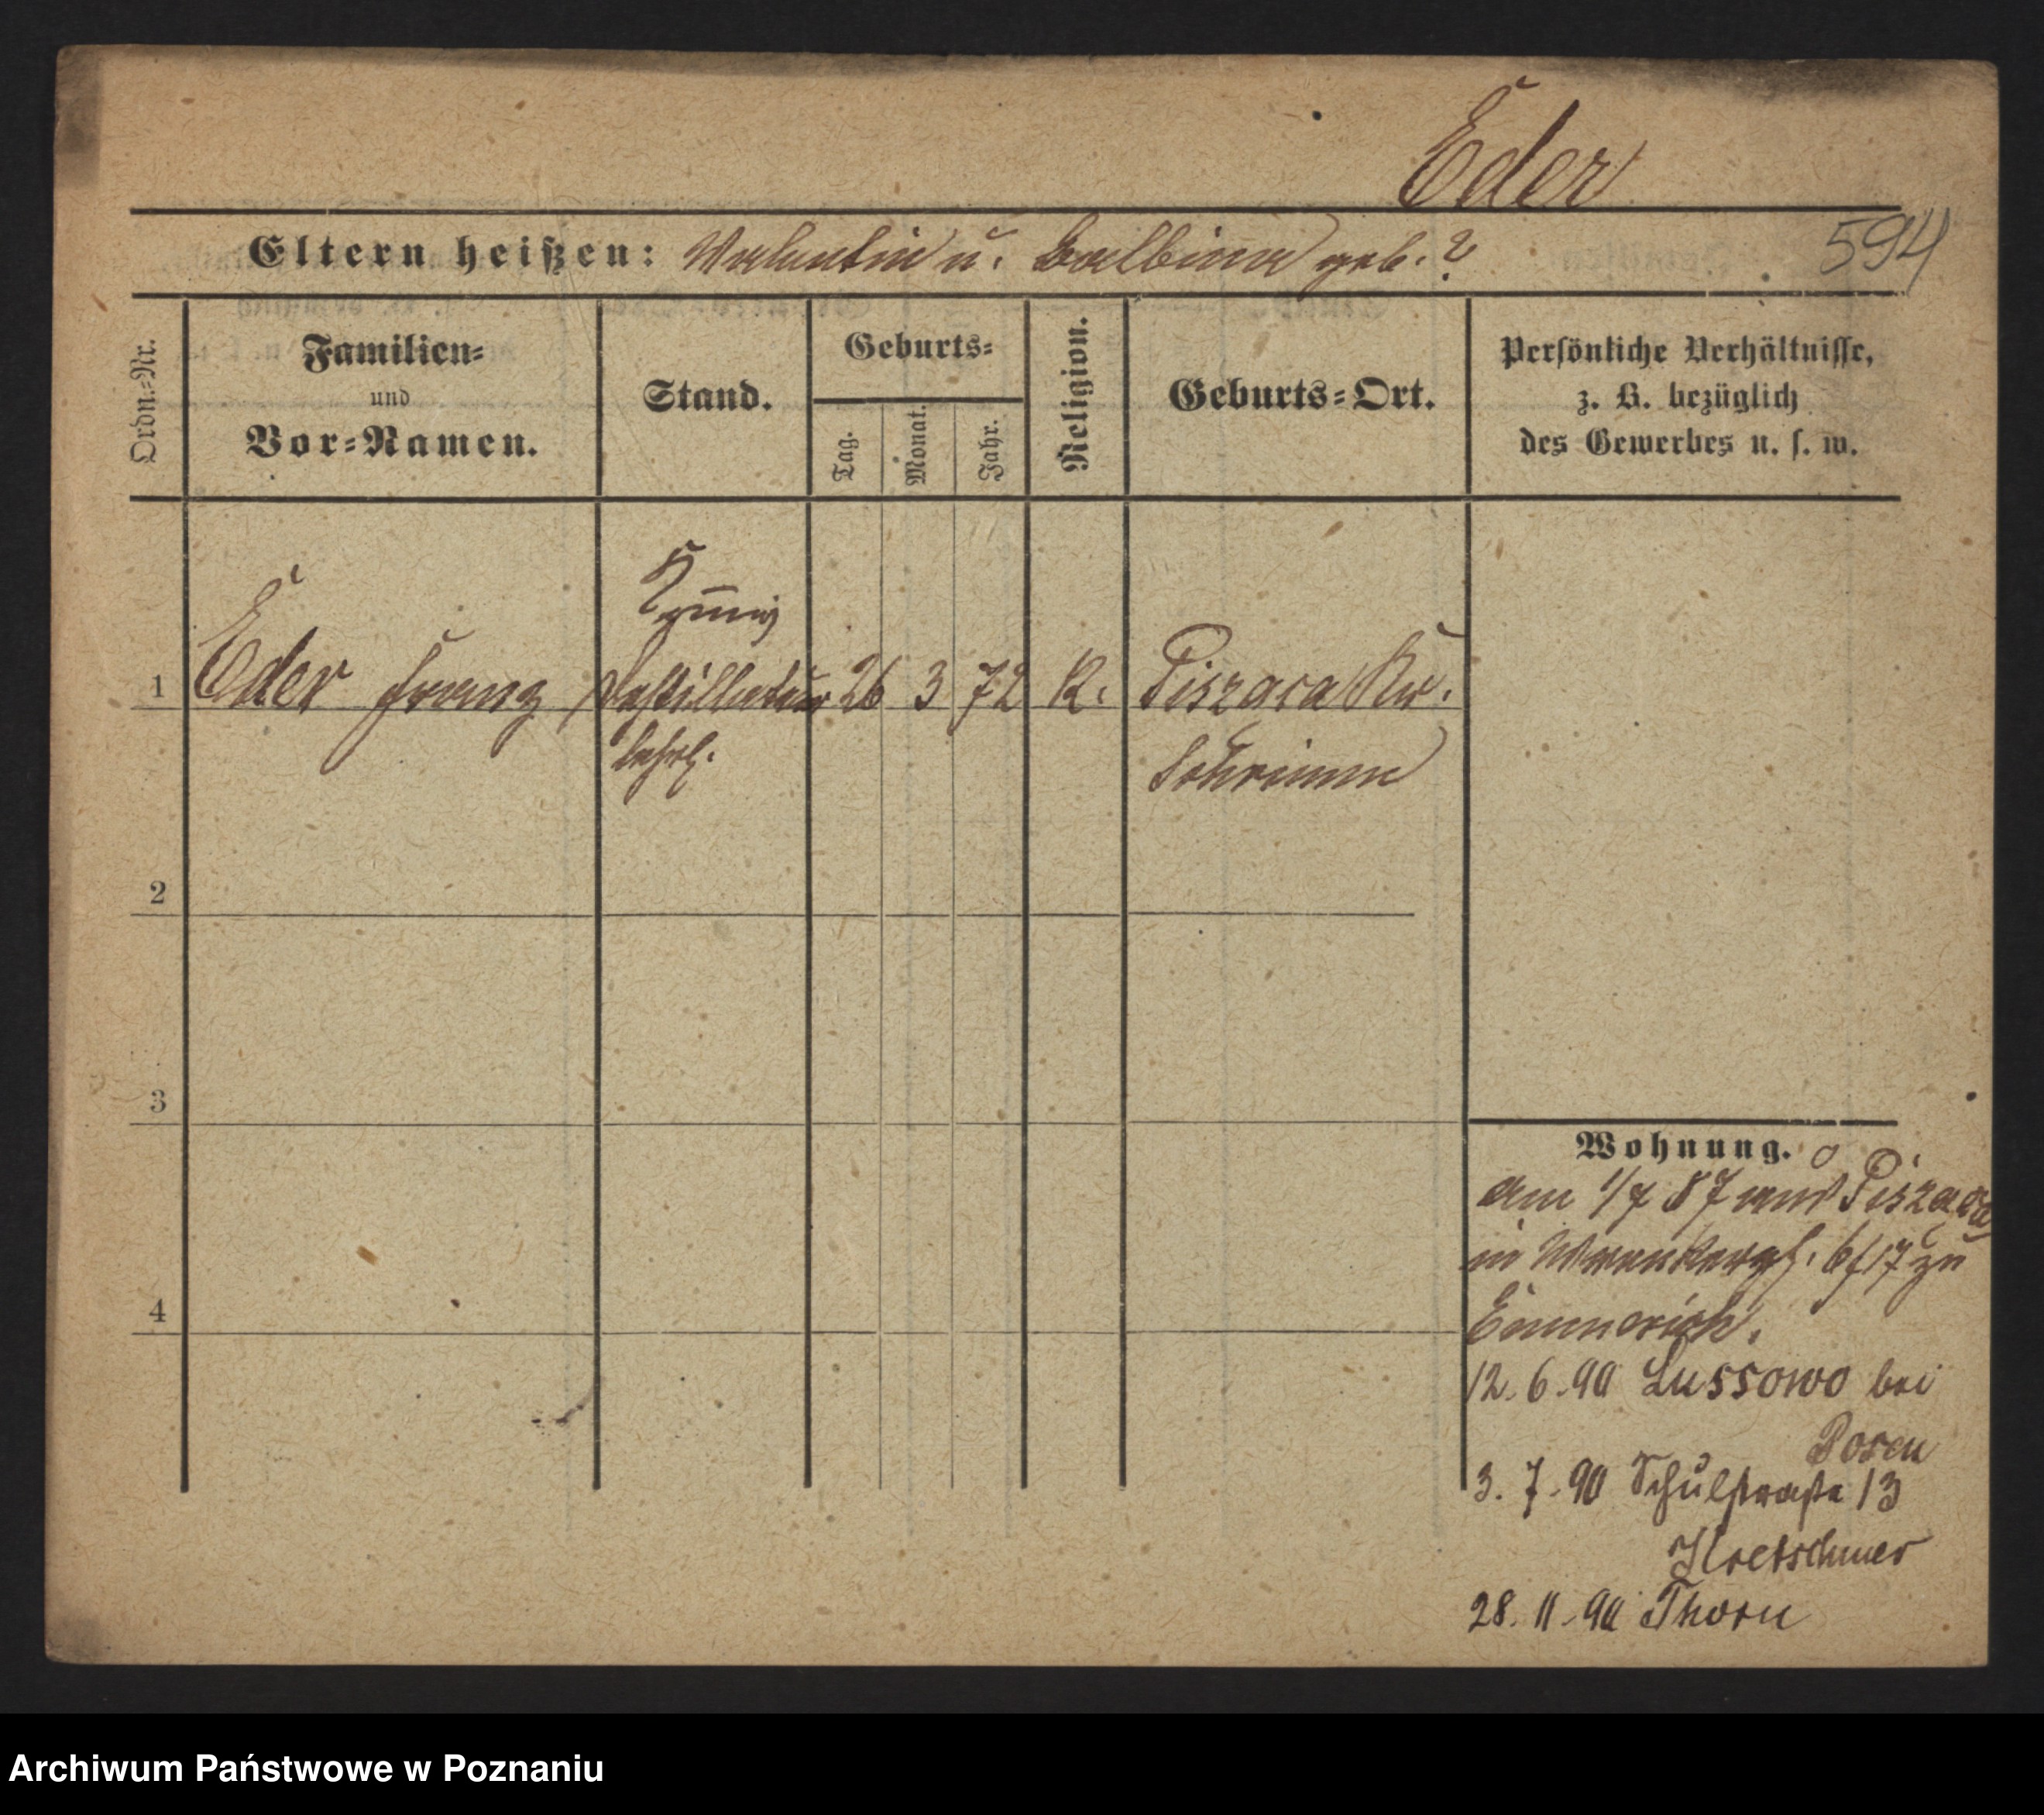 Eder
Eltern heißen: Valentin u. Balbina geb. ?
594
Ordn.=Nr.
Familien=
und
Vor=Namen.
Stand.
Geburts=
Tag.
Monat.
Jahr.
Religion.
Geburts=Ort.
Persönliche Verhältnisse,
z. B. bezüglich
des Gewerbes u. s. w.
1
Eder Franz
Destillateur
lehrl.
26 3 72 K.
Piszaca Kr.
Schrimm
2
3
4
Wohnung.
am 1/7 87 aus Piszaca
in 6/17 zu
Emmerich.
12. 6. 90 Lussowo bei
Posen
3. 7. 90 Schulstraße 13
Kretschmer
28. 11. 90 Thorn
Archiwum Państwowe w Poznaniu